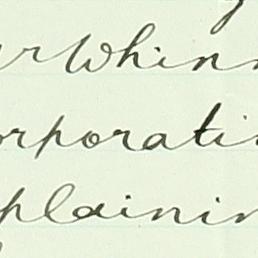 r Whinn
orporati
plainin